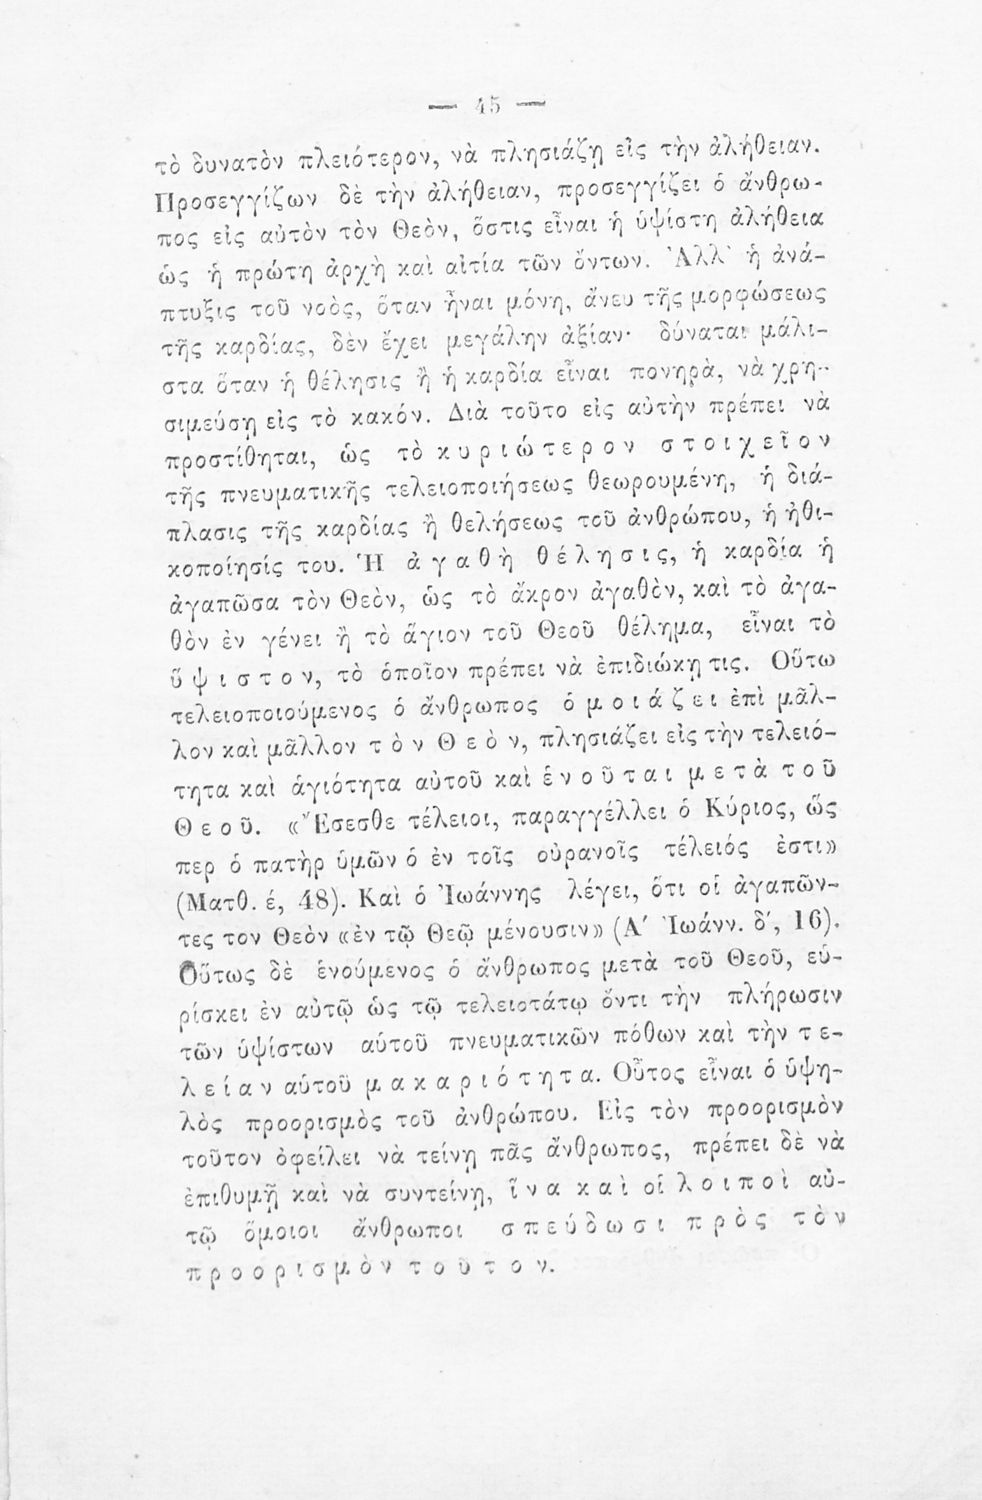 — 45 —
τὸ δυνατὸν πλειότερον, νὰ πλησιάζῃ εἰς τὴν ἀλήθειαν.
Προσεγγίζων δὲ τὴν ἀλήθειαν, προσεγγίζει ὁ ἄνθρω-
πος εἰς αὐτὸν τὸν Θεὸν, ὅστις εἶναι ἡ ὑψίστη ἀλήθεια
ὡς ἡ πρώτη ἀρχὴ καὶ αἰτία τῶν ὄντων. Ἀλλ' ἡ ἀνά-
πτυξις τοῦ νοὸς, ὅταν ἦναι μόνη, ἄνευ τῆς μορφώσεως
τῆς καρδίας, δὲν ἔχει μεγάλην ἀξίαν· δύναται μάλι-
στα ὅταν ἡ θέλησις ἢ ἡ καρδία εἶναι πονηρὰ, νὰ χρη-
σιμεύσῃ εἰς τὸ κακόν. Διὰ τοῦτο εἰς αὐτὴν πρέπει νὰ
προστίθηται, ὡς τὸ κυριώτερον στοιχεῖον
τῆς πνευματικῆς τελειοποιήσεως θεωρουμένη, ἡ διά-
πλασις τῆς καρδίας ἢ θελήσεως τοῦ ἀνθρώπου, ἡ ἠθι-
κοποίησίς του. Ἡ ἀγαθὴ θέλησις, ἡ καρδία ἡ
ἀγαπῶσα τὸν Θεὸν, ὡς τὸ ἄκρον ἀγαθὸν, καὶ τὸ ἀγα-
θὸν ἐν γένει ἢ τὸ ἅγιον τοῦ Θεοῦ θέλημα, εἶναι τὸ
ὕψιστον, τὸ ὁποῖον πρέπει νὰ ἐπιδιώκῃ τις. Οὕτω
τελειοποιούμενος ὁ ἄνθρωπος ὁμοιάζει ἐπὶ μᾶλ-
λον καὶ μᾶλλον τὸν Θεὸν, πλησιάζει εἰς τὴν τελειό-
τητα καὶ ἁγιότητα αὐτοῦ καὶ ἑνοῦται μετὰ τοῦ
Θεοῦ. «Ἔσεσθε τέλειοι, παραγγέλλει ὁ Κύριος, ὥς
περ ὁ πατὴρ ὑμῶν ὁ ἐν τοῖς οὐρανοῖς τέλειός ἐστι»
(Ματθ. έ, 48). Καὶ ὁ Ἰωάννης λέγει, ὅτι οἱ ἀγαπῶν-
τες τον Θεὸν «ἐν τῷ Θεῷ μένουσιν» (Α' Ἰωάνν. δ', 16).
Οὕτως δὲ ἑνούμενος ὁ ἄνθρωπος μετὰ τοῦ Θεοῦ, εὑ-
ρίσκει ἐν αὐτῷ ὡς τῷ τελειοτάτῳ ὄντι τὴν πλήρωσιν
τῶν ὑψίστων αὑτοῦ πνευματικῶν πόθων καὶ τὴν τε-
λείαν αὑτοῦ μακαριότητα. Οὗτος εἶναι ὁ ὑψη-
λὸς προορισμὸς τοῦ ἀνθρώπου. Εἰς τὸν προορισμὸν
τοῦτον ὀφείλει νὰ τείνῃ πᾶς ἄνθρωπος, πρέπει δὲ νὰ
ἐπιθυμῇ καὶ νὰ συντείνῃ, ἵνα καὶ οἱ λοιποὶ αὐ-
τῷ ὅμοιοι ἄνθρωποι σπεύδωσι πρὸς τὸν
προορισμὸν τοῦτον.